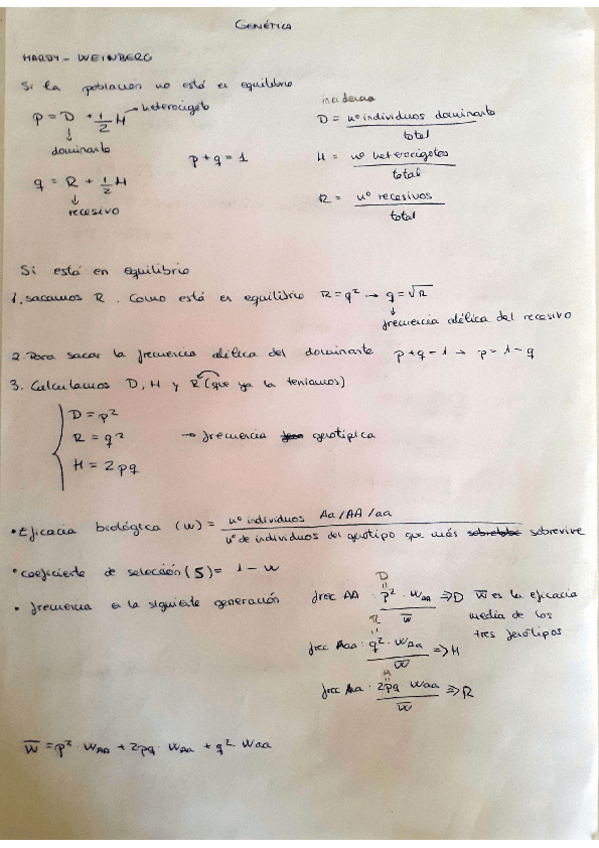 GENÉTICA
HARDY - WEINBERG
Si la poblacion no está en equilibrio
p = D + 1/2 H → heterocigoto
↓
dominante
p + q = 1
q = R + 1/2 H
↓
recesivo
incidencia
D = nº individuos dominante / total
H = nº heterocigotos / total
R = nº recesivos / total
Si está en equilibrio
1. sacamos R. Como está en equilibrio R = q² → q = √R
↓
frecuencia alélica del recesivo
2. Para sacar la frecuencia alélica del dominante p + q = 1 → p = 1 - q
3. Calculamos D, H y R (que ya la teníamos)
D = p²
R = q² → frecuencia genotípica
H = 2pq
• Eficacia biológica (w) = nº individuos Aa/AA/aa / nº de individuos del genotipo que más sobrevive
• coeficiente de selección (S) = 1 - w
• frecuencia en la siguiente generación
D
=
frec AA : p² · wAA / w̅ ⇒ D
w̅ es la eficacia
media de los
tres genotipos
R
=
frec Aaa : q² · wAa / w̅ ⇒ H
H
=
frec Aa : 2pq waa / w̅ ⇒ R
w̅ = p² · wAA + 2pq · wAa + q² waa